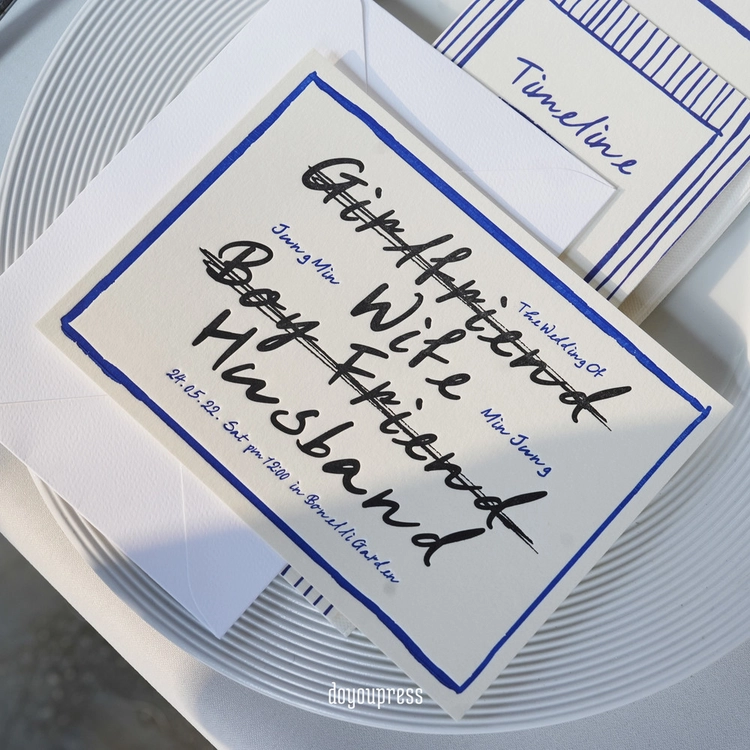 Timeline
Girlfriend
The Wedding Of
Jung Min
Wife
Boy Friend
Min Jung
Husband
24.05.22. Sat pm 12:00 in Bonelli Garden
doyoupress